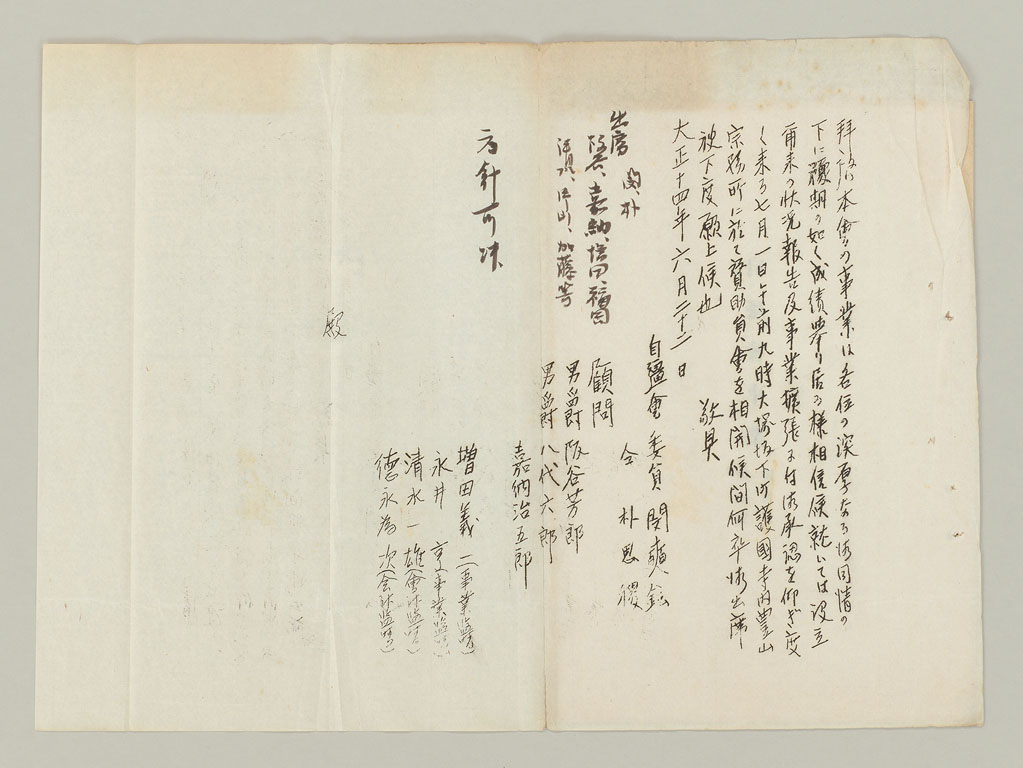 拝啓 本會の事業は各位の深厚なる御同情の
下に予期の如く成績挙り居る様相信候就いては設立
爾来の状況報告及事業擴張に付御承認を仰ぎ度
く来る七月一日午前九時大塚坂下町護國寺内豊山
宗務所に於て賛助員會を相開候間何卒御出席
被下度願上候也
敬具
大正十四年六月二十二日
自彊會 委員 閔奭鉉
仝 朴思稷
出席 閔、朴
阪谷、嘉納、増田、福田
清水、加藤等
顧問
男爵 阪谷芳郎
男爵 八代六郎
嘉納治五郎
方針可決
増田義一(事業監督)
永井 亨(事業監督)
清水一雄(會計監督)
徳永為次(會計監督)
殿